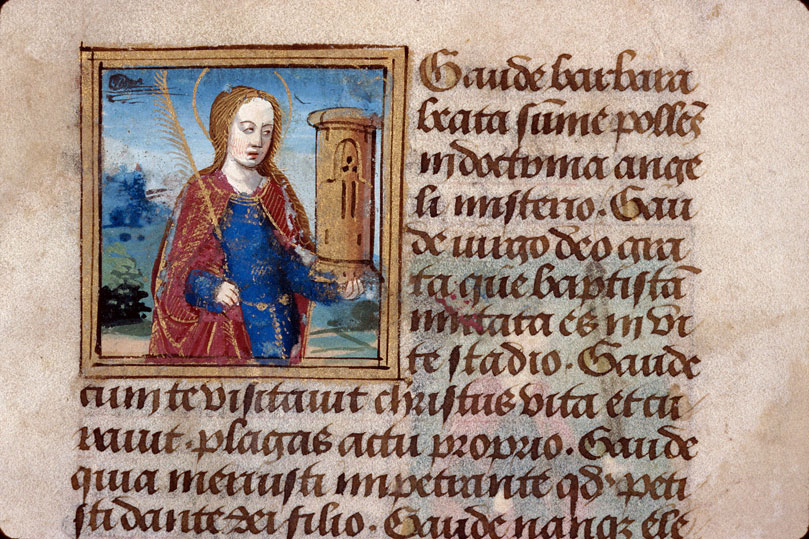 Gaude barbara
beata sūme polleṡ
in doctrina ange
li misterio. Gau
de uirgo deo gra
ta que baptistā
imitata es in vi
te stadio. Gaude
cum te visitauit christus vita et cu
rauit. plagas actu proprio. Gaude
quia meruisti impetrante qd peti
sti dante dei filio. Gaude nanqꝫ ele